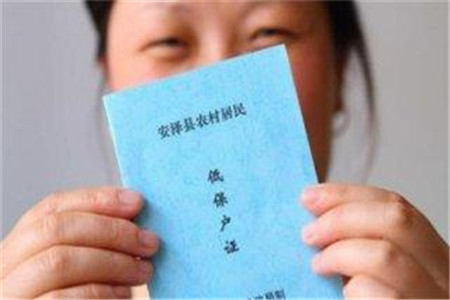 安泽县农村居民
低保户证
局制